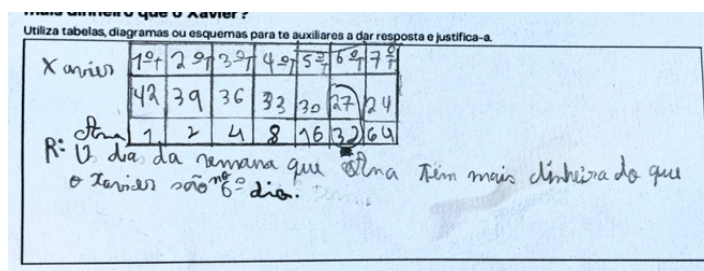 mais dinheiro que o Xavier ?
Utiliza tabelas, diagramas ou esquemas para te auxiliares a dar resposta e justifica-a.
Xavier 1ºT 2ºT 3ºT 4ºT 5ºT 6ºT 7ºT
42 39 36 33 30 27 24
Ana 1 2 4 8 16 32 64
R: O dia da semana que Ana têm mais dinheiro do que
o Xavier são no 6º dia.